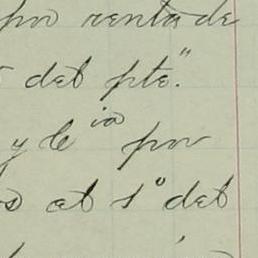 por renta de
del pte."
y le ia por
al 1° del